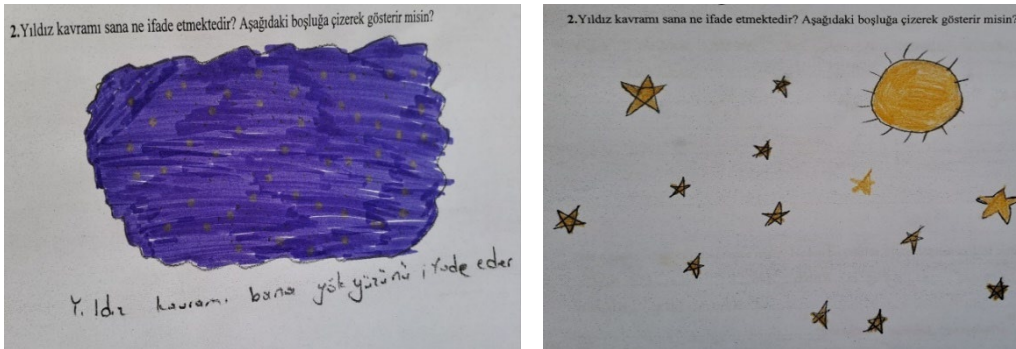 2.Yıldız kavramı sana ne ifade etmektedir? Aşağıdaki boşluğa çizerek gösterir misin?
Yıldız kavramı bana gökyüzünü ifade eder
2.Yıldız kavramı sana ne ifade etmektedir? Aşağıdaki boşluğa çizerek gösterir misin?